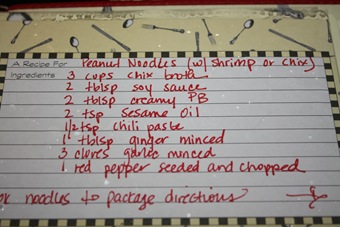 A Recipe For Peanut Noodles (w/ shrimp or chix)
Ingredients 3 cups chix broth
2 tblsp soy sauce
2 tblsp creamy PB
2 tsp sesame oil
1/2 tsp chili paste
1 tblsp ginger minced
3 cloves garlic minced
1 red pepper seeded and chopped
noodles to package directions